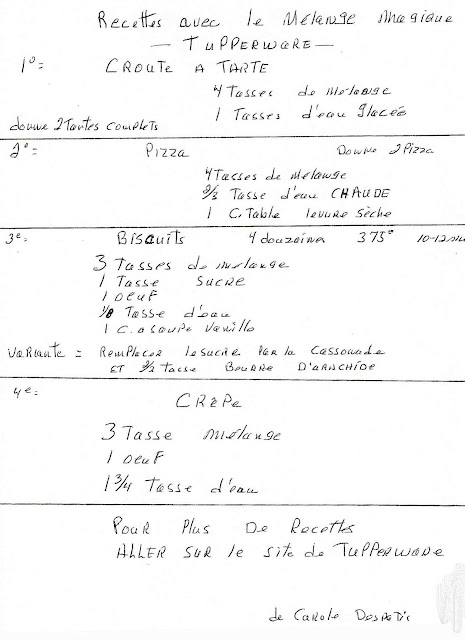 Recettes avec le Mélange magique
— TUPPERWARE —
1º= CROUTE A TARTE
4 Tasses de mélange
1 Tasses d'eau glacée
donne 2 Tartes complets
2e= Pizza Donne 2 Pizza
4 Tasses de mélange
2/3 Tasse d'eau CHAUDE
1 C. Table levure sèche
3e= Biscuits 4 douzaines 375° 10-12 min
3 Tasses de mélange
1 Tasse sucre
1 oeuf
1/8 Tasse d'eau
1 C. a soupe vanille
variante = Remplacer le sucre par la Cassonade
ET 3/2 Tasse Beurre D'ARACHIDE
4e= CRèPe
3 Tasse mélange
1 oeuf
1 3/4 Tasse d'eau
Pour Plus De Recettes
ALLER SUR le site de TUPPERWARE
de Carole